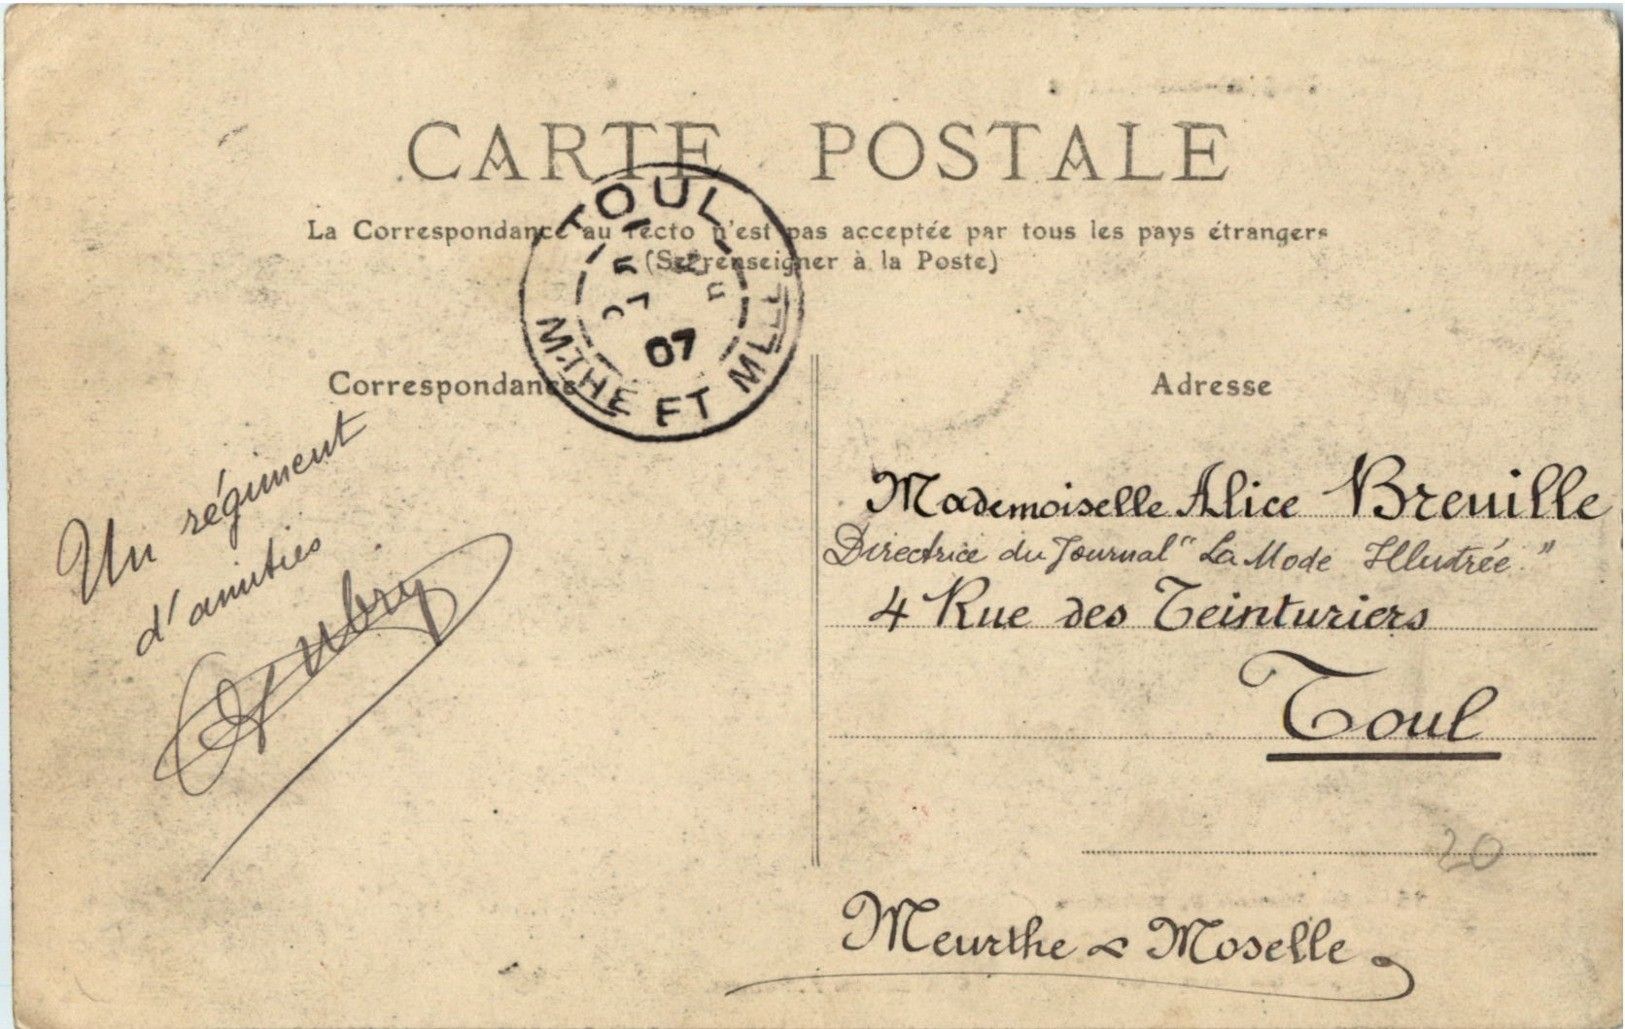 CARTE POSTALE
La Correspondance au recto n'est pas acceptée par tous les pays étrangers
(Se renseigner à la Poste)
TOUL
07
MTHE ET MLLE
Correspondance
Adresse
Un régiment
d'amitiés
Aubry
Mademoiselle Alice Breuille
Directrice du Journal "La Mode Illustrée."
4 Rue des Teinturiers
Toul
20
Meurthe & Moselle